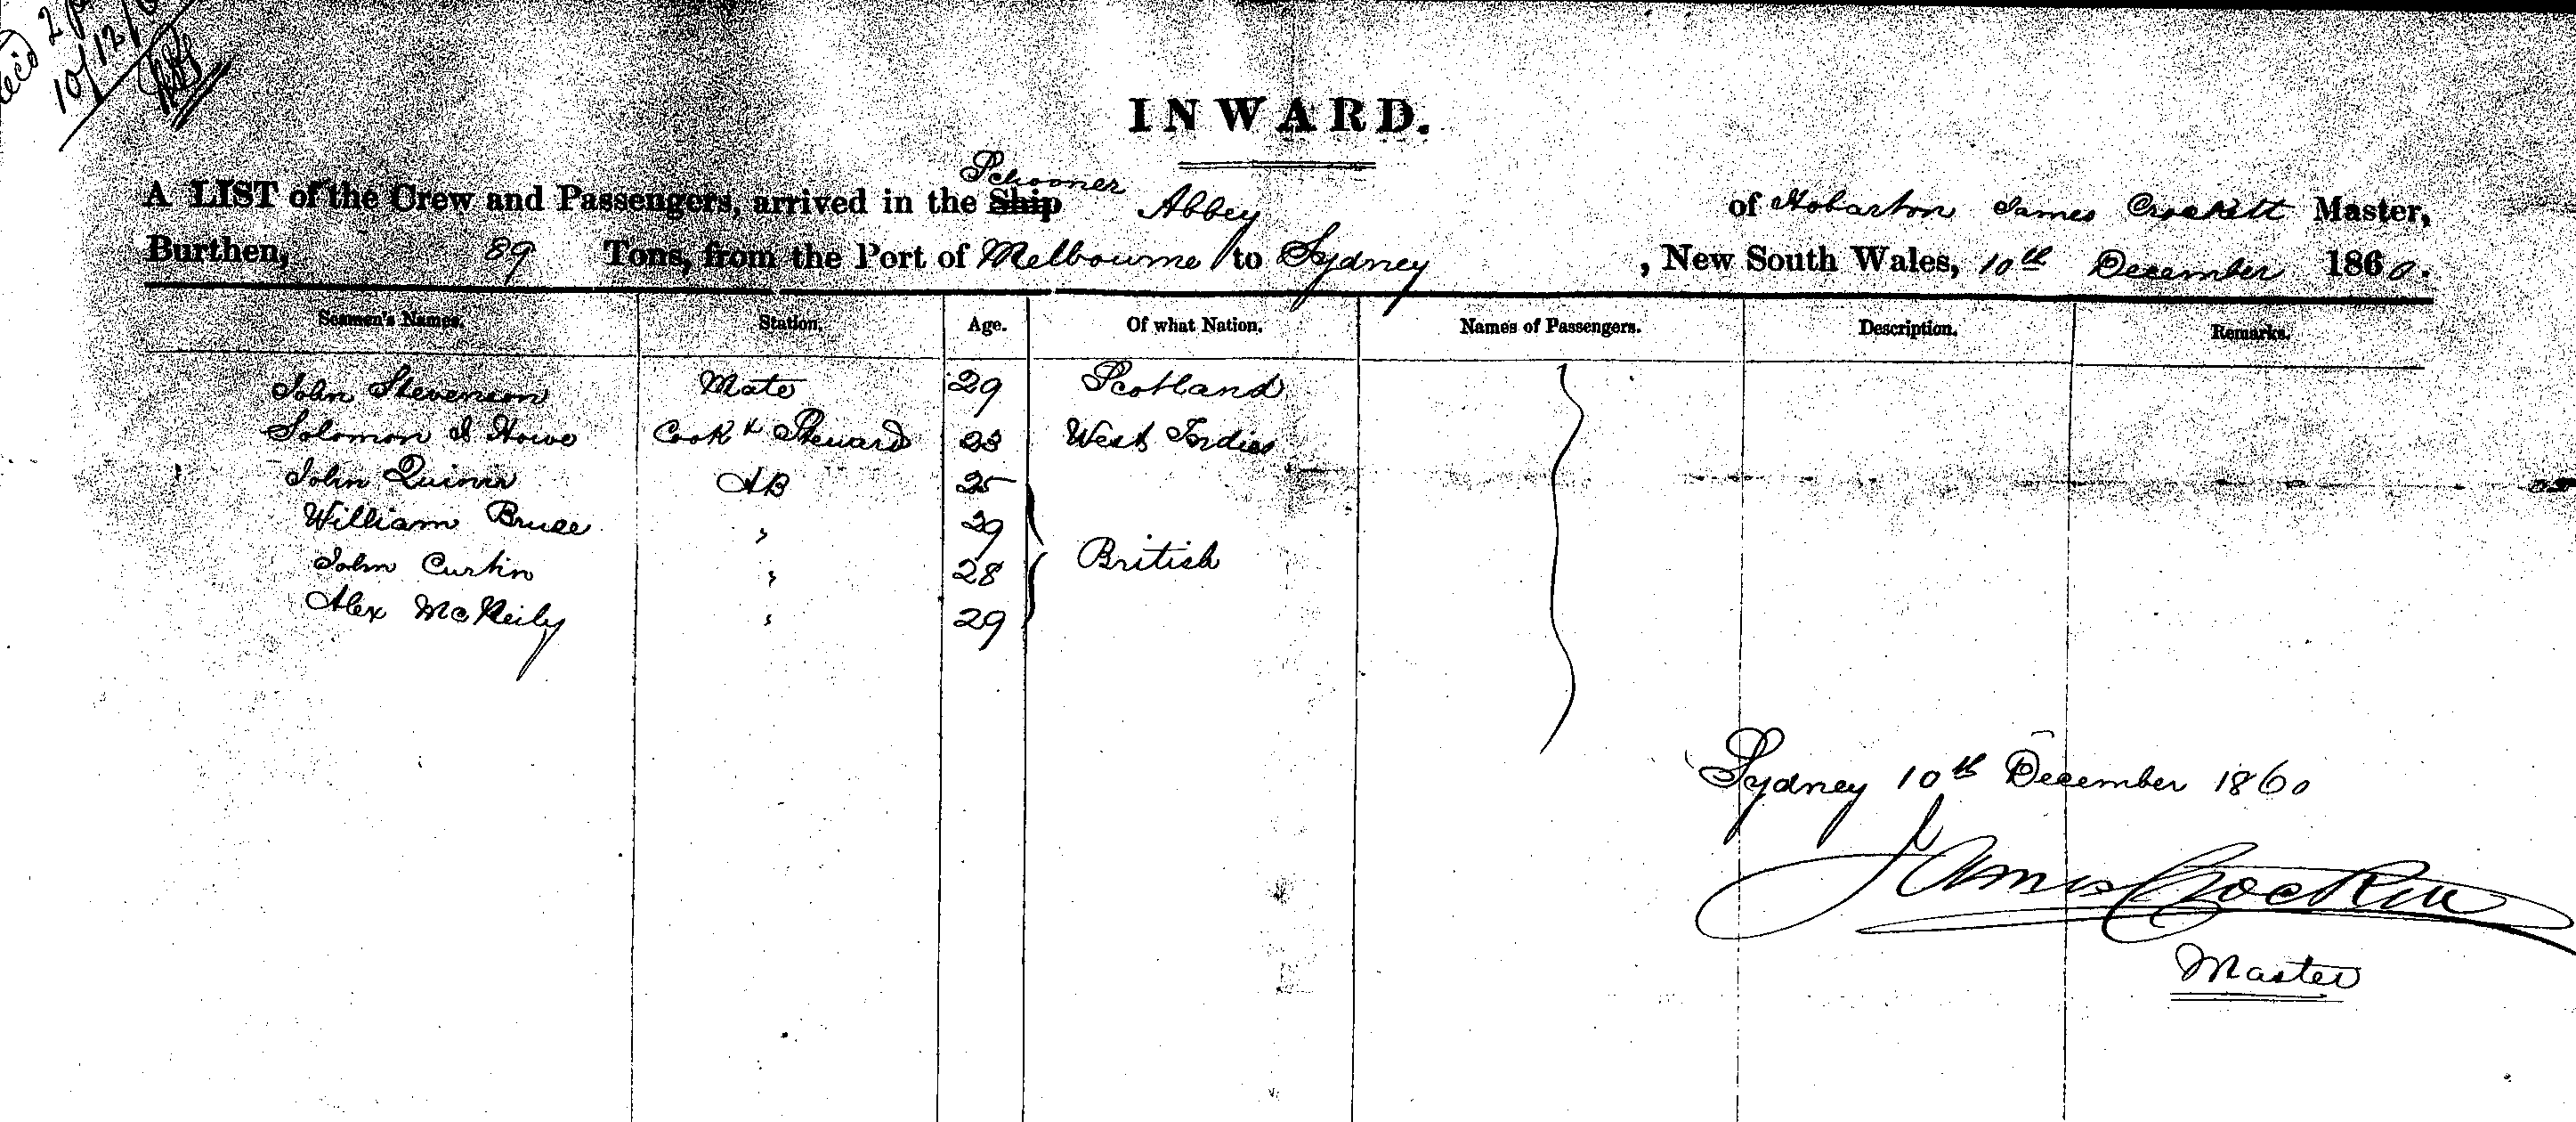 10/12/
INWARD.
A LIST of the Crew and Passengers, arrived in the Ship Schooner Abbey of Hobarton James Crockett Master,
Burthen, 89 Tons, from the Port of Melbourne to Sydney, New South Wales, 10th December 1860.
Seamen's Names. Station. Age. Of what Nation. Names of Passengers. Description. Remarks.
John Stevenson Mate 29 Scotland
Solomon I Howe Cook & Steward 23 West Indies
John Quinn AB 25
William Bruce " 29
John Curtin " 28 British
Alex McNeily " 29
Sydney 10th December 1860
James Crockett
Master